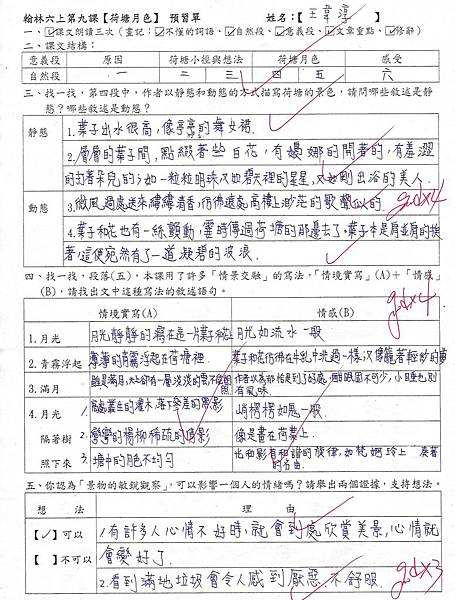 翰林六上第九課【荷塘月色】 預習單 姓名：【王韋淳】
一、☑課文朗讀三次（畫記：☑不懂的詞語、☑自然段、☑意義段、☑文章重點、☑修辭）
二、課文結構：
意義段 原因 荷塘小徑與想法 荷塘月色 感受
自然段 一 二 三 四 五 六
三、找一找，第四段中，作者以靜態和動態的方式描寫荷塘的景色，請問哪些敘述是靜
態？哪些敘述是動態？
靜態 1.葉子出水很高，像亭亭的舞女裙。
2.層層的葉子間，點綴著些白花，有嬝娜的開著的，有羞澀
的打著朵兒的；如一粒粒明珠又如碧天裡的星星，又如剛出浴的美人
動態 3.微風過處送來縷縷清香，彷彿遠處高樓上渺茫的歌聲似的 gdx4
4.葉子和花也有一絲顫動，霎時傳過荷塘的那邊去了。葉子本是肩並肩的挨
著，這便宛然有了一道凝碧的波浪
四、找一找，段落(五)，本課用了許多「情景交融」的寫法，「情境實寫」(A)＋「情感」
(B)，請找出文中這種寫法的敘述語句。 gdx4
情境實寫(A) 情感(B)
1.月光 月光靜靜的瀉在這一片葉子和花上 月光如流水一般
2.青霧浮起 薄薄的青霧浮起在荷塘裡 葉子和花彷彿在牛乳中洗過一樣又像籠著輕紗的夢
3.滿月 雖是滿月，天上卻有一層淡淡的雲不能朗照 作者以為那恰是到了好處，酣眠固不可少，小睡也別
有風味
4.月光 1.高處叢生的灌木，落下參差的黑影 峭楞楞如鬼一般
隔著樹 2.彎彎的楊柳稀疏的倩影 像是畫在荷葉上
照下來 3.塘中的月色不均勻 光和影有和諧的旋律，如梵婀玲上奏著
的名曲
五、你認為「景物的敏銳觀察」，可以影響一個人的情緒嗎？請舉出兩個證據，支持想法。
想 法 理 由
【✓】可以 1.有許多人心情不好時，就會到處欣賞美景，心情就
【 】不可以 會變好了。
2.看到滿地垃圾會令人感到厭惡、不舒服。 gdx3